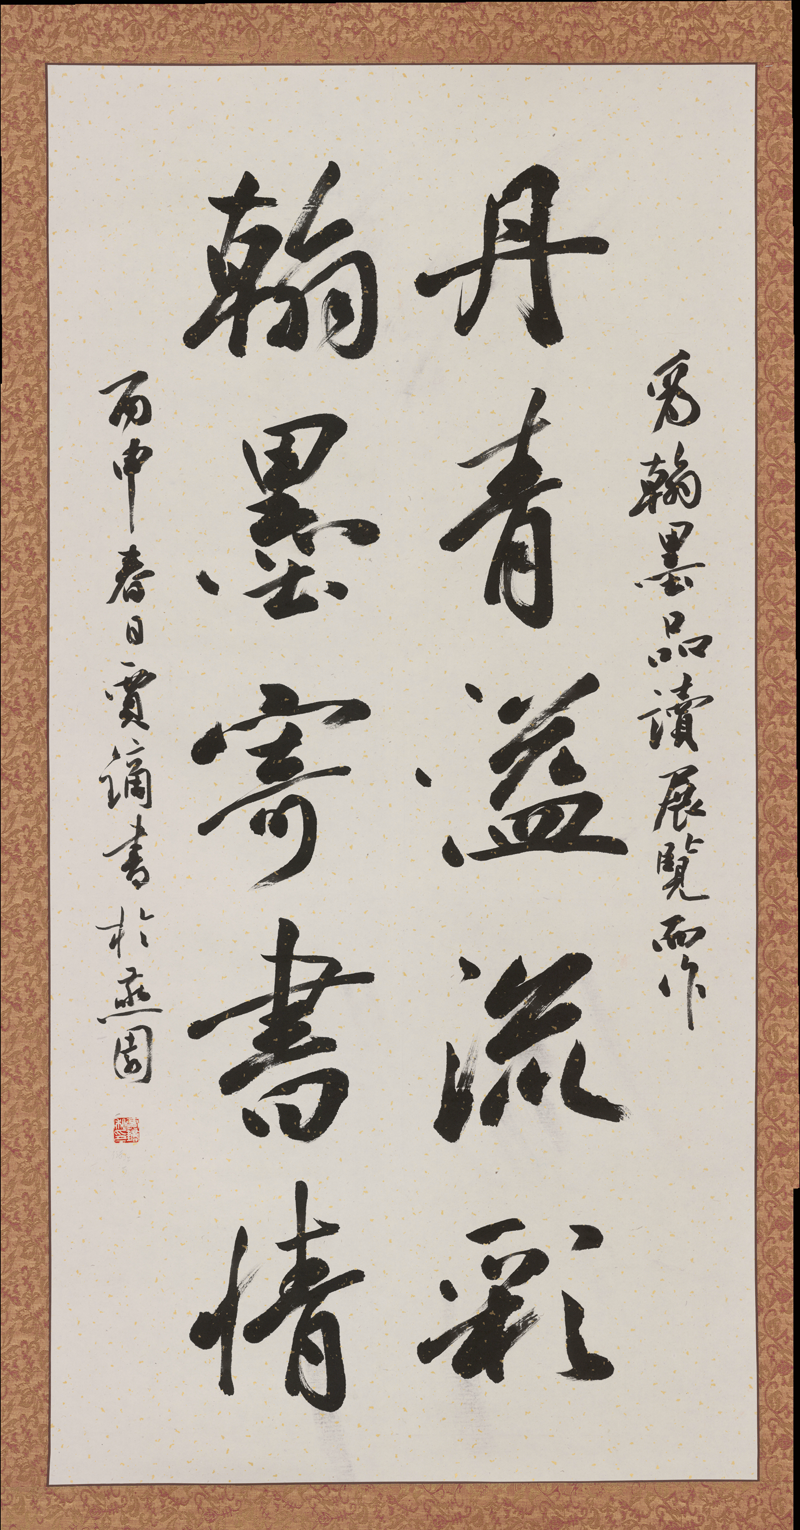 為翰墨品讀展覽而作
丹青溢流彩
翰墨寄書情
丙申春日賈鏑書於燕園